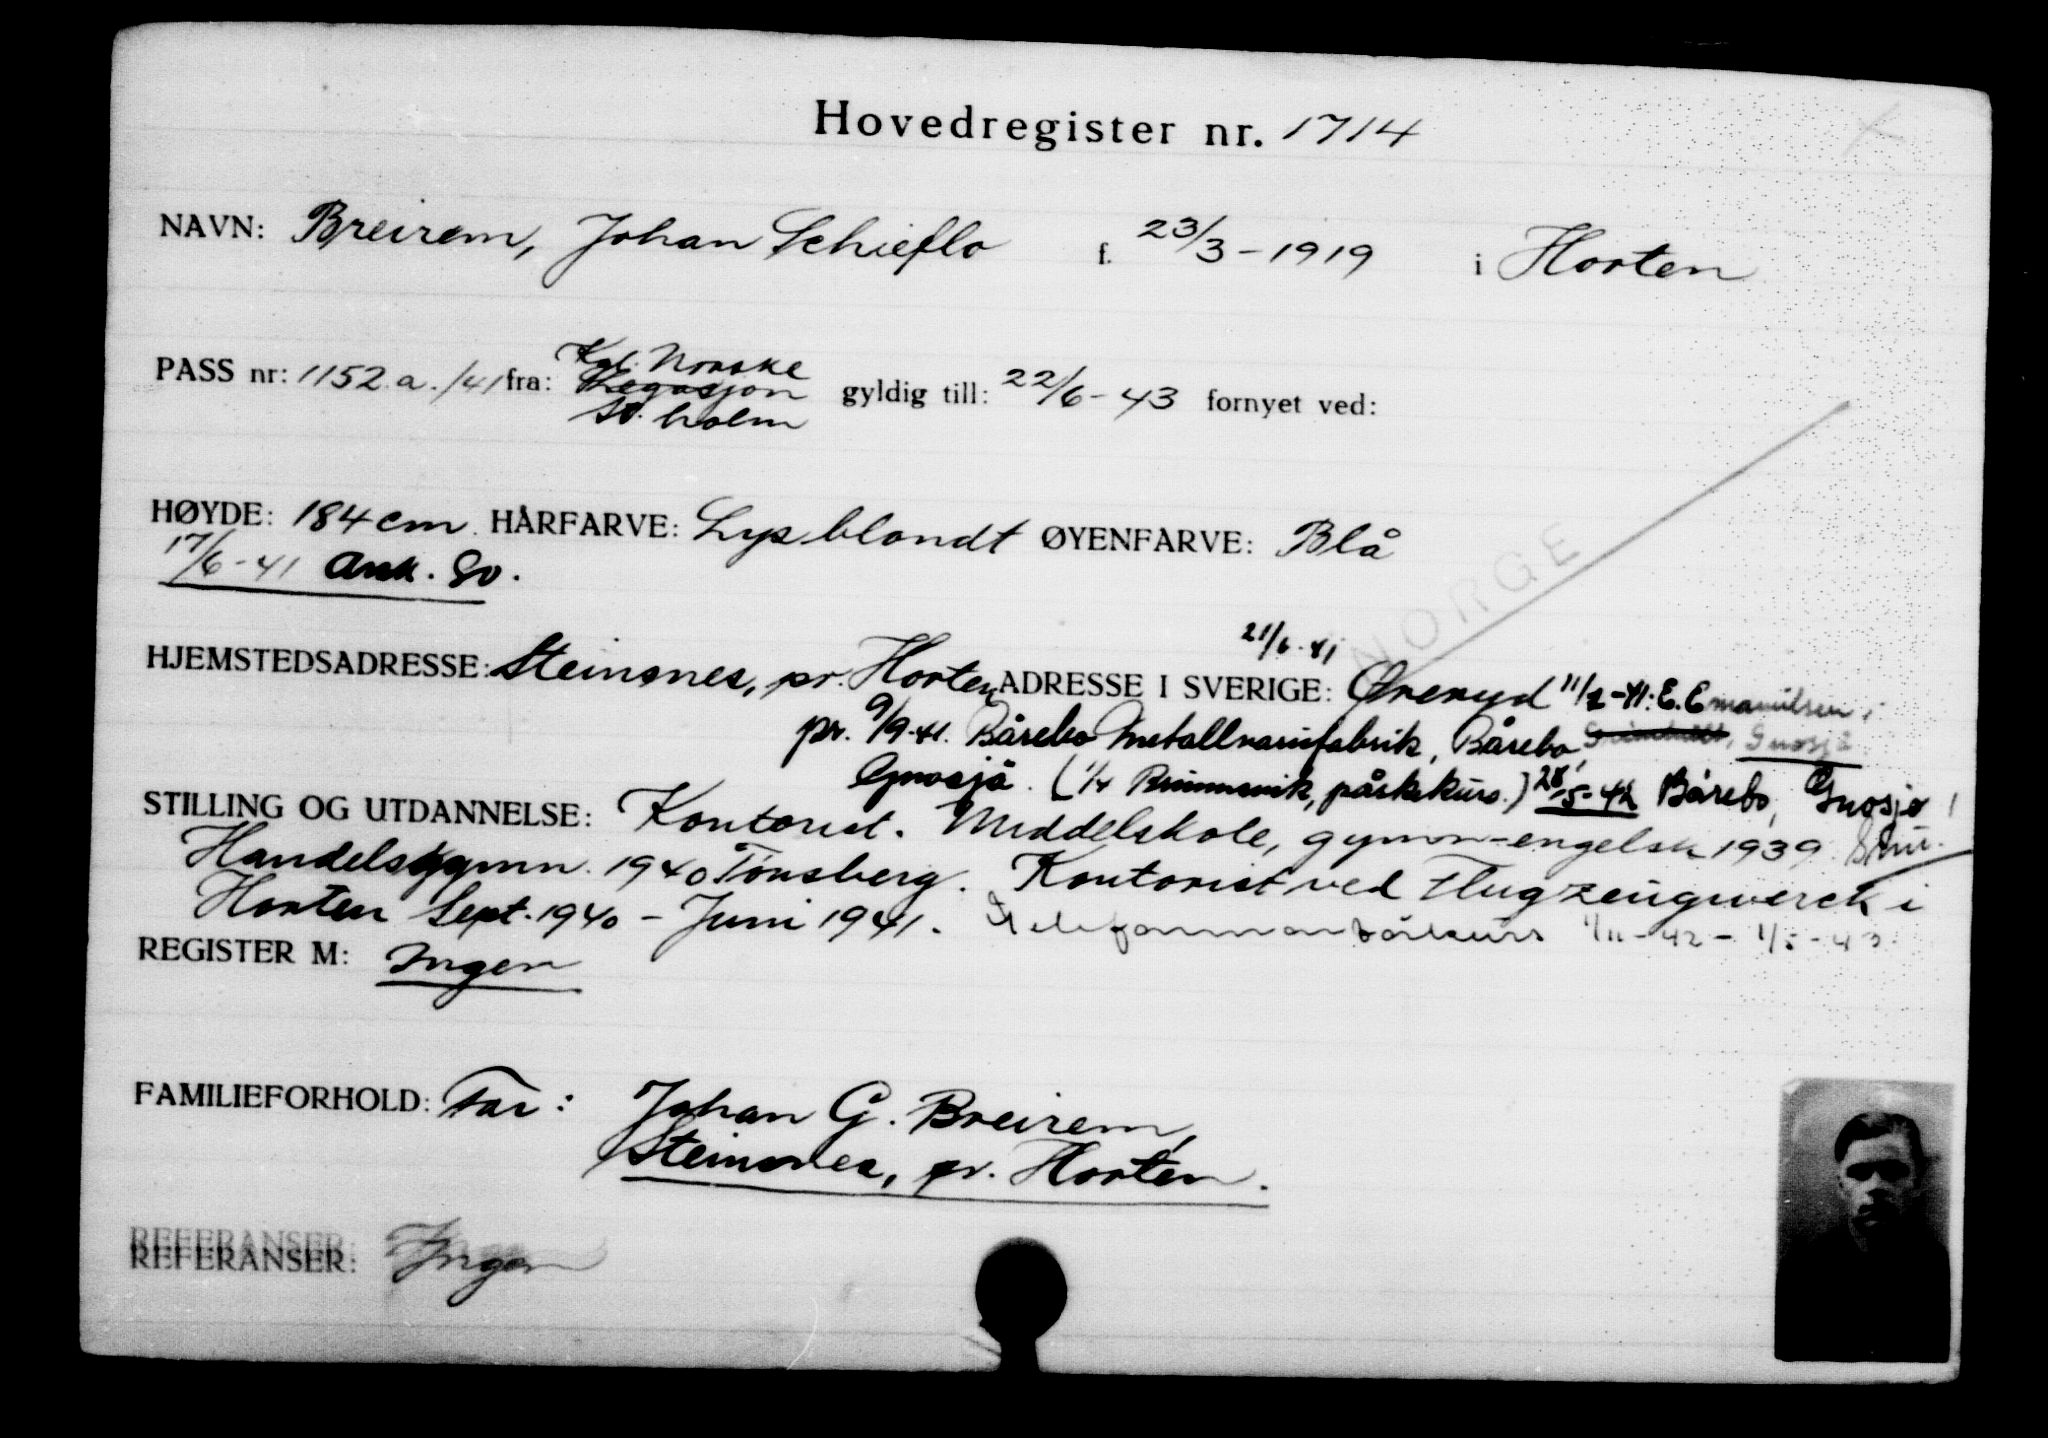 Hovedregister nr. 1714
NAVN: Breirem, Johan Schieflo f. 23/3-1919 i Horten
PASS nr: 1152 a./41 fra: Kgl. Norske Legasjon St.holm gyldig till: 22/6-43 fornyet ved:
HØYDE: 184 cm. HÅRFARVE: Lys blondt ØYENFARVE: Blå
17/6-41 Ank. Sv.
NORGE
21/6-41
HJEMSTEDSADRESSE: Steinsnes, pr. Horten ADRESSE I SVERIGE: Øreryd 11/2-41: E. Emanuilsen,
pr. 9/9-41. Bårebo Metallvarufabrik, Bårebo, Gnosjö
Gnosjö. (1/4 Brunnsvik, påskekurs.) 28/5-42 Bårebo, Gnosjø
STILLING OG UTDANNELSE: Kontorist. Middelskole, gymn-engelsk 1939.
Handelsgymn. 1940 Tønsberg. Kontorist ved Flugzeugwerck i
Horten Sept. 1940 - Juni 1941. 1/11-42 - 1/5-43.
REGISTER M: Ingen
FAMILIEFORHOLD: Far: Johan G. Breirem,
Steinsnes, pr. Horten.
REFERANSER: Ingen